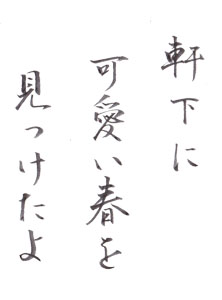 軒下に
可愛い春を
見つけたよ